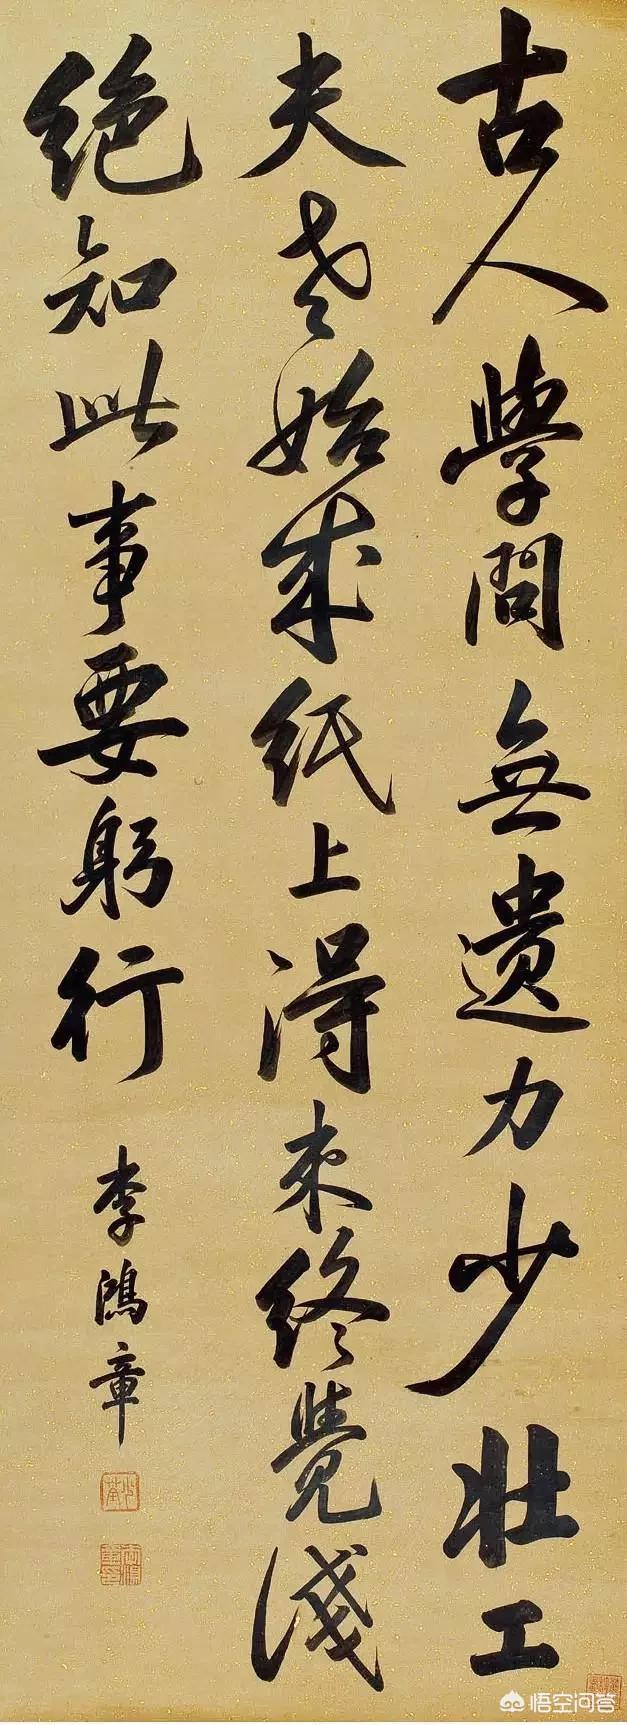 古人學問無遺力少壯工
夫老始成紙上得来終覺淺
絶知此事要躬行
李鴻章
少荃
悟空问答